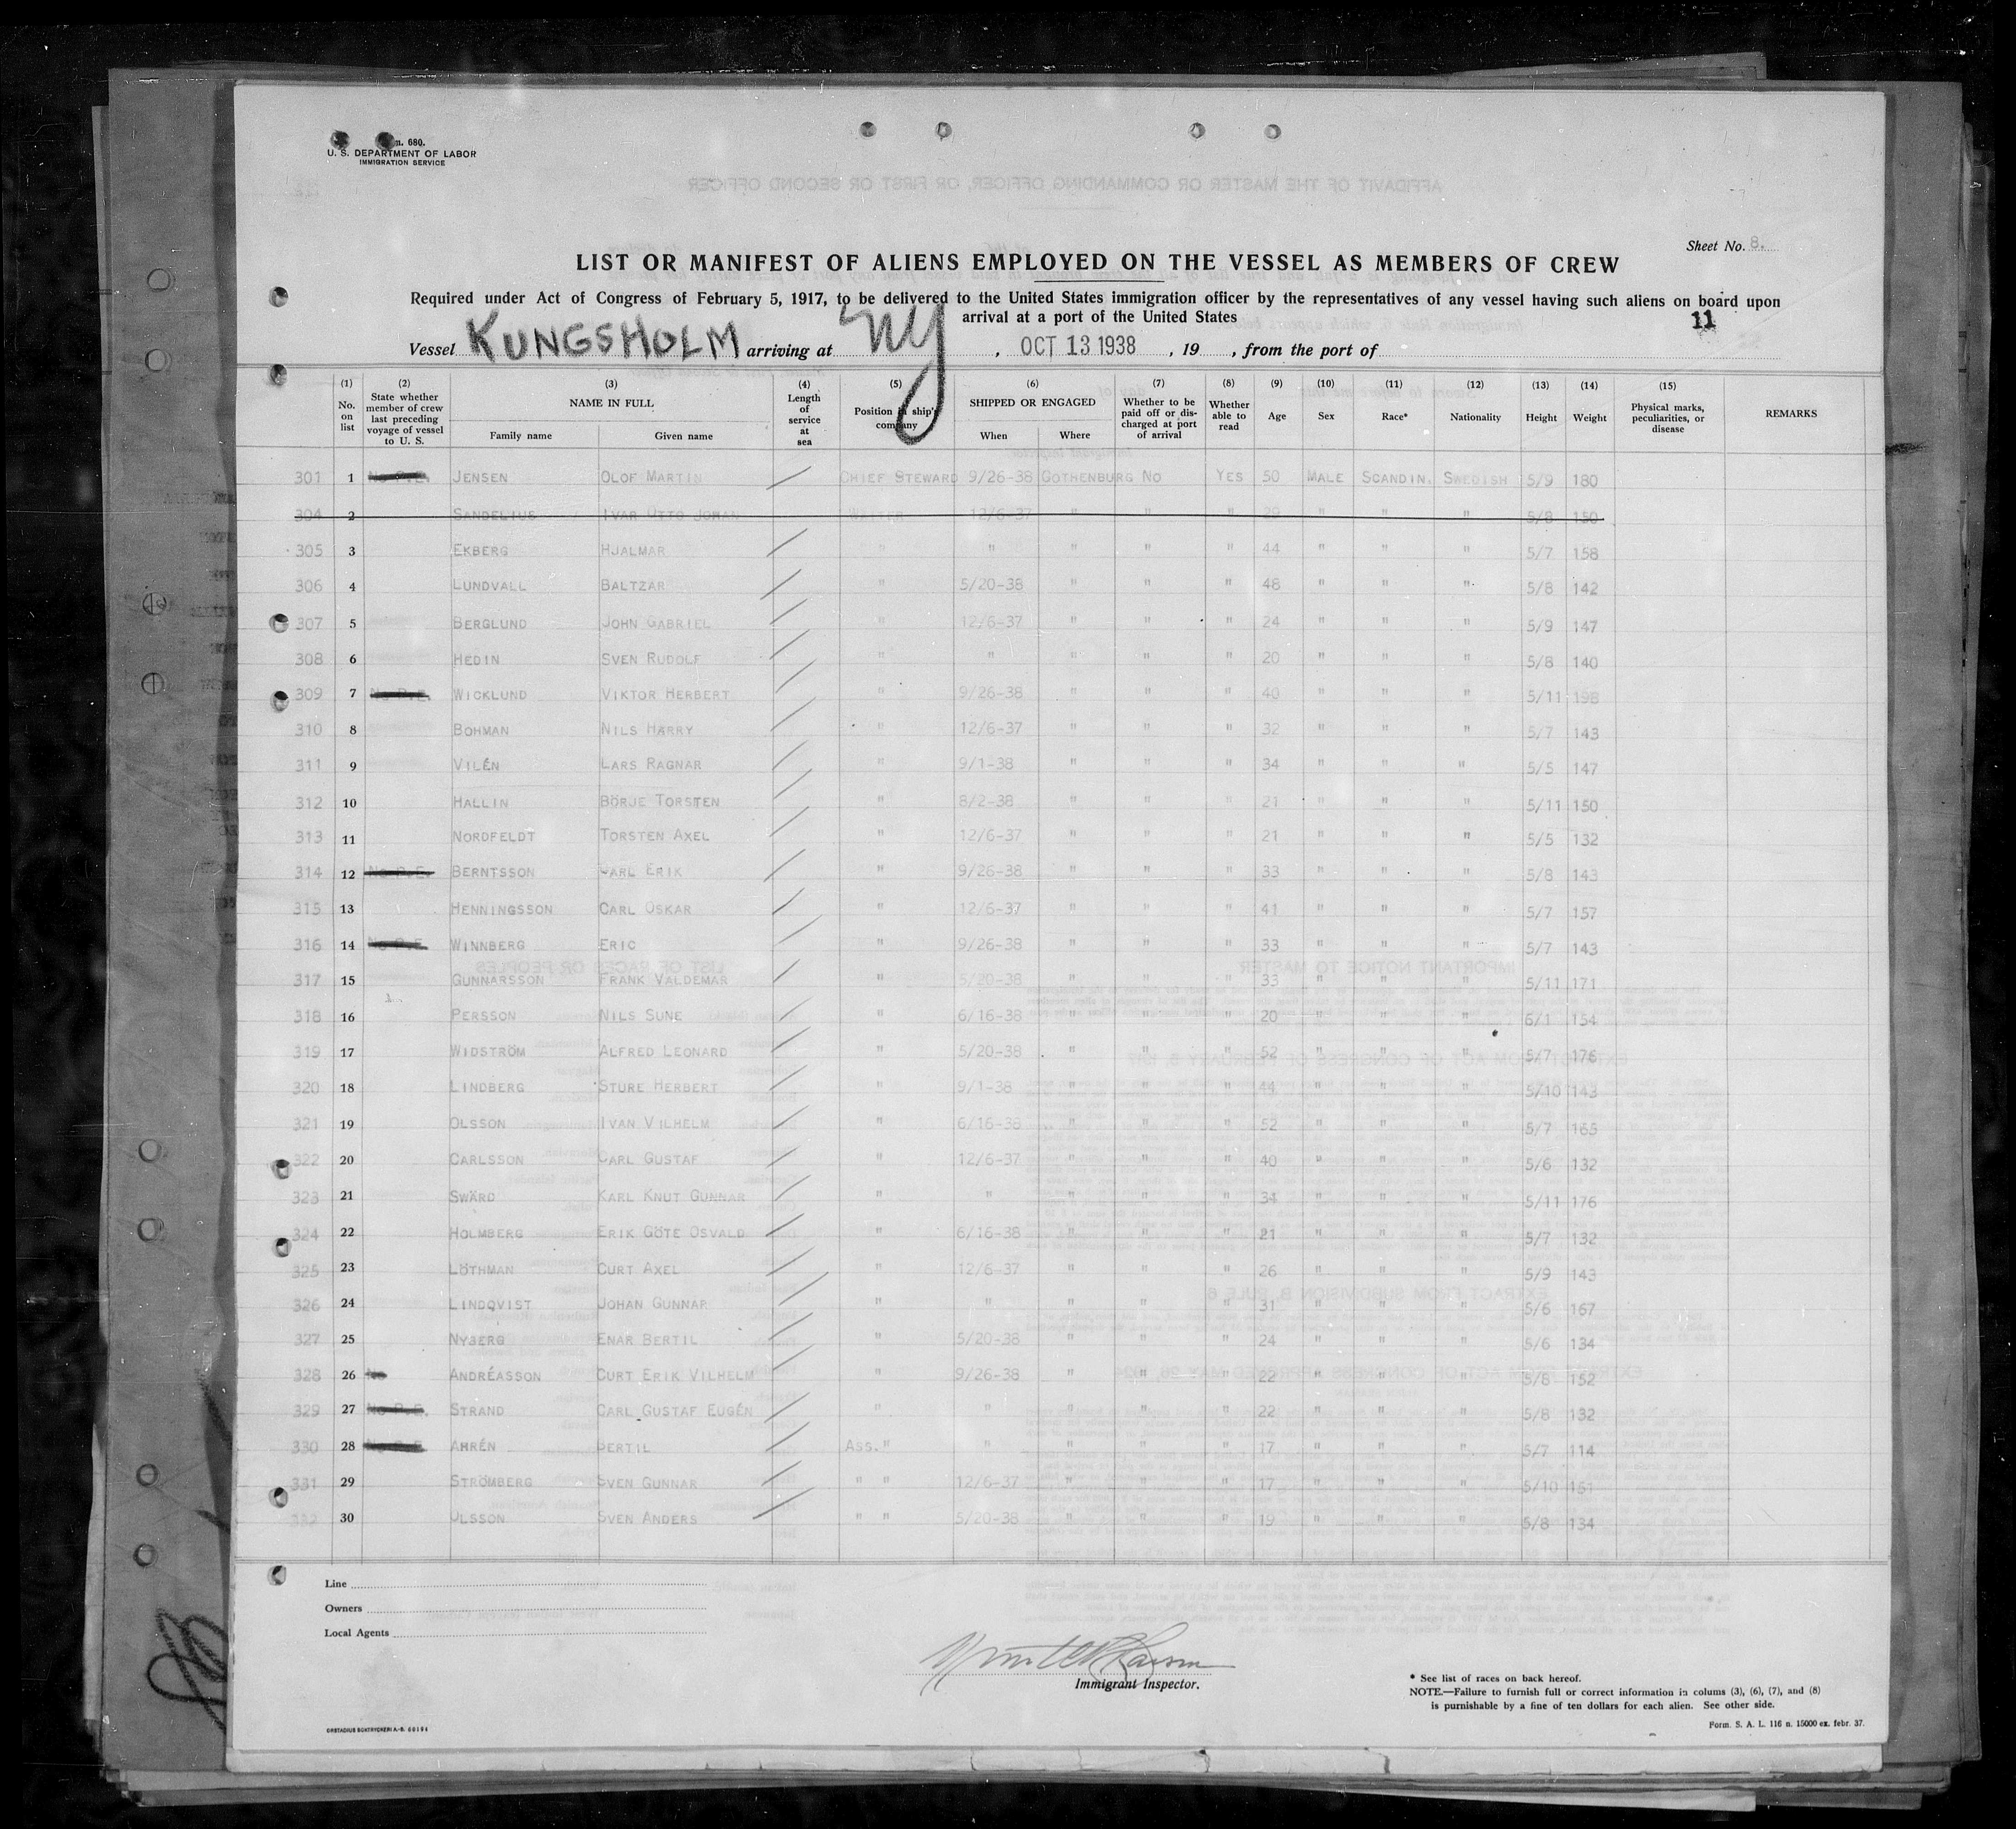 n. 680.
U. S. DEPARTMENT OF LABOR
IMMIGRATION SERVICE
Sheet No. 8.
LIST OR MANIFEST OF ALIENS EMPLOYED ON THE VESSEL AS MEMBERS OF CREW
Required under Act of Congress of February 5, 1917, to be delivered to the United States immigration officer by the representatives of any vessel having such aliens on board upon
arrival at a port of the United States
11
Vessel KUNGSHOLM arriving at NY, OCT 13 1938, 19 , from the port of
(1) No. on list (2) State whether member of crew last preceding voyage of vessel to U. S. (3) NAME IN FULL Family name Given name (4) Length of service at sea (5) Position in ship's company (6) SHIPPED OR ENGAGED When Where (7) Whether to be paid off or discharged at port of arrival (8) Whether able to read (9) Age (10) Sex (11) Race* (12) Nationality (13) Height (14) Weight (15) Physical marks, peculiarities, or disease REMARKS
301 1 No P.E. JENSEN OLOF MARTIN CHIEF STEWARD 9/26-38 GOTHENBURG NO YES 50 MALE SCANDIN. SWEDISH 5/9 180
304 2 SANDELIUS IVAR OTTO JOHAN WAITER 12/6-37 " " " 29 " " " 5/8 150
305 3 EKBERG HJALMAR " " " " " 44 " " " 5/7 158
306 4 LUNDVALL BALTZAR " 5/20-38 " " " 48 " " " 5/8 142
307 5 BERGLUND JOHN GABRIEL " 12/6-37 " " " 24 " " " 5/9 147
308 6 HEDIN SVEN RUDOLF " " " " " 20 " " " 5/8 140
309 7 No P.E. WICKLUND VIKTOR HERBERT " 9/26-38 " " " 40 " " " 5/11 198
310 8 BOHMAN NILS HARRY " 12/6-37 " " " 32 " " " 5/7 143
311 9 VILÉN LARS RAGNAR " 9/1-38 " " " 34 " " " 5/5 147
312 10 HALLIN BÖRJE TORSTEN " 8/2-38 " " " 21 " " " 5/11 150
313 11 NORDFELDT TORSTEN AXEL " 12/6-37 " " " 21 " " " 5/5 132
314 12 No P.E. BERNTSSON CARL ERIK " 9/26-38 " " " 33 " " " 5/8 143
315 13 HENNINGSSON CARL OSKAR " 12/6-37 " " " 41 " " " 5/7 157
316 14 No P.E. WINNBERG ERIC " 9/26-38 " " " 33 " " " 5/7 143
317 15 GUNNARSSON FRANK VALDEMAR " 5/20-38 " " " 33 " " " 5/11 171
318 16 PERSSON NILS SUNE " 6/16-38 " " " 20 " " " 6/1 154
319 17 WIDSTRÖM ALFRED LEONARD " 5/20-38 " " " 52 " " " 5/7 176
320 18 LINDBERG STURE HERBERT " 9/1-38 " " " 44 " " " 5/10 143
321 19 OLSSON IVAN VILHELM " 6/16-38 " " " 52 " " " 5/7 165
322 20 CARLSSON CARL GUSTAF " 12/6-37 " " " 40 " " " 5/6 132
323 21 SWÄRD KARL KNUT GUNNAR " " " " " 34 " " " 5/11 176
324 22 HOLMBERG ERIK GÖTE OSVALD " 6/16-38 " " " 21 " " " 5/7 132
325 23 LÖTHMAN CURT AXEL " 12/6-37 " " " 26 " " " 5/9 143
326 24 LINDQVIST JOHAN GUNNAR " " " " " 31 " " " 5/6 167
327 25 NYBERG ENAR BERTIL " 5/20-38 " " " 24 " " " 5/6 134
328 26 No ANDRÉASSON CURT ERIK VILHELM " 9/26-38 " " " 22 " " " 5/8 152
329 27 No P.E. STRAND CARL GUSTAF EUGÉN " " " " " 22 " " " 5/8 132
330 28 No P.E. AHRÉN BERTIL ASS. " " " " " 17 " " " 5/7 114
331 29 STRÖMBERG SVEN GUNNAR " " 12/6-37 " " " 17 " " " 5/10 151
332 30 OLSSON SVEN ANDERS " " 5/20-38 " " " 19 " " " 5/8 134
Line
Owners
Local Agents
Immigrant Inspector.
* See list of races on back hereof.
NOTE.—Failure to furnish full or correct information in colums (3), (6), (7), and (8)
is purnishable by a fine of ten dollars for each alien. See other side.
Form. S. A. L. 116 n. 15000 ex. febr. 37.